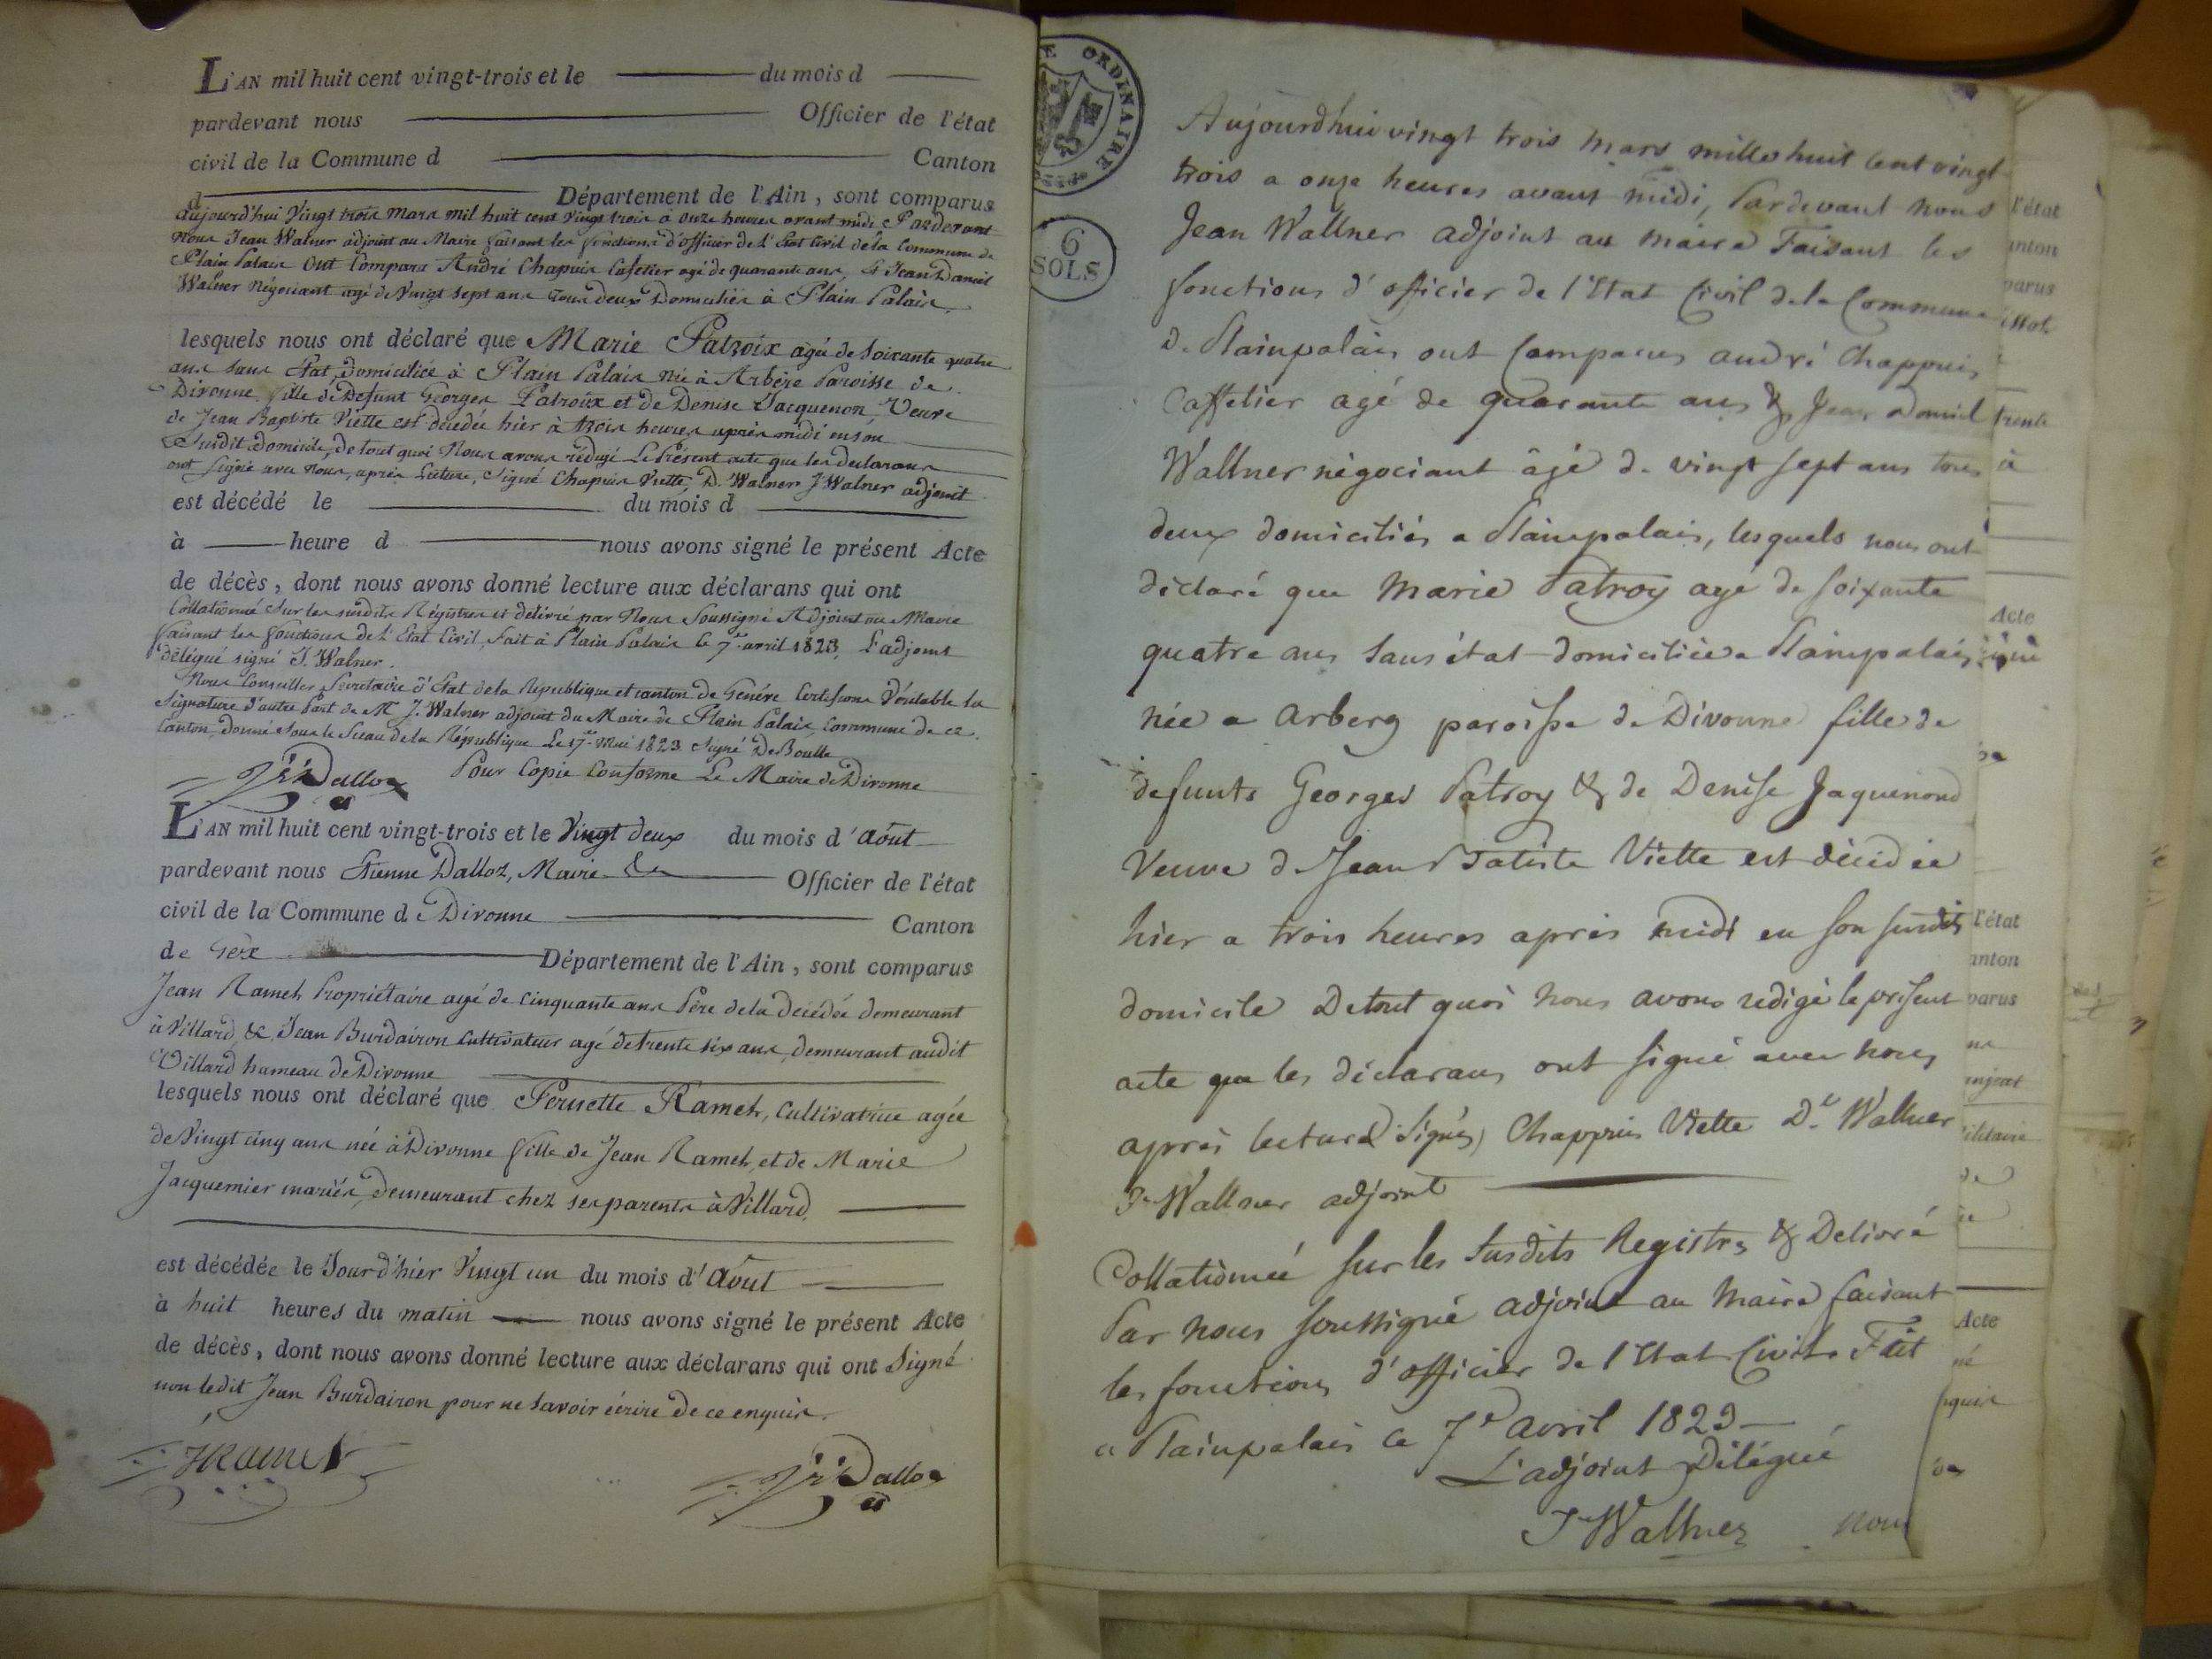 L'AN mil huit cent vingt-trois et le du mois d
pardevant nous Officier de l'état
civil de la Commune d Canton
d Département de l'Ain, sont comparus
aujourd'hui Vingt trois mars mil huit cent vingt trois a onze heures avant midi Pardevant
nous Jean Walner adjoint au Maire faisant les fonctions d'officier de l'Etat Civil de la Commune de
Plain Palais Ont Comparu André Chapuis Cafetier agé de quarante ans, & Jean Daniel
Walner Négociant agé de Vingt sept ans tous deux Domiciliés à Plain Palais,
lesquels nous ont déclaré que Marie Patroix agée de Soixante quatre
ans sans Etat, domiciliée à Plain Palais née à Arbère Paroisse de
Divonne, fille de Defunt Georges Patroix et de Denise Jacquenon, Veuve
de Jean Baptiste Viette est décédée hier à trois heures après midi en son
Susdit domicile, de tout quoi Nous avons rédigé le Présent acte que les declarans
ont signé avec nous, après lecture, Signé Chapuis Viette, D. Walner J Walner adjoint
est décédé le du mois d
à heure d nous avons signé le présent Acte
de décès, dont nous avons donné lecture aux déclarans qui ont
Collationné Sur les susdits Régistres et délivré par Nous Soussigné Adjoint au Maire
faisant les fonctions de l'Etat Civil, Fait à Plain Palais le 7e avril 1823, L'adjoint
délégué signé J. Walner.
Nous Conseiller Secretaire d'Etat de la République et canton de Genève Certifions Véritable la
Signature d'autre Part de Mr J. Walner adjoint du Maire de Plain Palais, Commune de ce
Canton, donné sous le Sceau de la République Le 17e Mai 1823 Signé DeBoulle
Pour Copie Conforme Le Maire de Divonne
Dalloz
L'AN mil huit cent vingt-trois et le Vingt deux du mois d'Août
pardevant nous Etienne Dalloz, Maire & Officier de l'état
civil de la Commune de Divonne Canton
de Gex Département de l'Ain, sont comparus
Jean Ramel Propriétaire agé de Cinquante ans Père de la Décédée demeurant
à Villard & Jean Burdairon Cultivateur agé de trente six ans, demeurant audit
Villard hameau de Divonne
lesquels nous ont déclaré que Pernette Ramel, Cultivatrice agée
de Vingt cinq ans née à Divonne fille de Jean Ramel, et de Marie
Jacquemier mariés, demeurant chez ses parents à Villard,
est décédée le Jourd'hier Vingt un du mois d'Août
à huit heures du matin nous avons signé le présent Acte
de décès, dont nous avons donné lecture aux déclarans qui ont Signé
non ledit Jean Burdairon pour ne savoir écrire de ce enquis.
JRamel
Dalloz
ORDINAIRE
6
SOLS
Aujourdhui vingt trois mars mille huit cent vingt
trois a onze heures avant midi, Pardevant nous
Jean Wallner adjoint au maire Faisant les
fonctions d'officier de l'Etat Civil de la Commune
de Plainpalais ont comparus andré Chappuis
Caffetier agé de quarante ans & Jean Daniel
Wallner négociant âgé de vingt sept ans tous
deux domiciliés a Plainpalais, lesquels nous ont
déclaré que Marie Patroy agé de soixante
quatre ans sans état domiciliée a Plainpalais
née a Arberg paroisse de Divonne fille de
defunts Georges Patroy & de Denise Jaquenond
Veuve de Jean Batiste Viette est décédée
hier a trois heures après midi en son susdit
domicile De tout quoi nous avons redigé le présent
acte que les déclarans ont signé avec nous
après lecture (Signés) Chappuis Viette Dl Wallner
Jn Wallner adjoint
Collationné sur les susdits Registres & Delivré
Par nous soussigné adjoint au Maire faisant
les fonctions d'officier de l'Etat Civil. Fait
a Plainpalais Ce 7e avril 1823
L'adjoint Délégué
J Wallner
Nous
l'état
anton
parus
trente
à
Acte
l'état
anton
parus
Acte
né